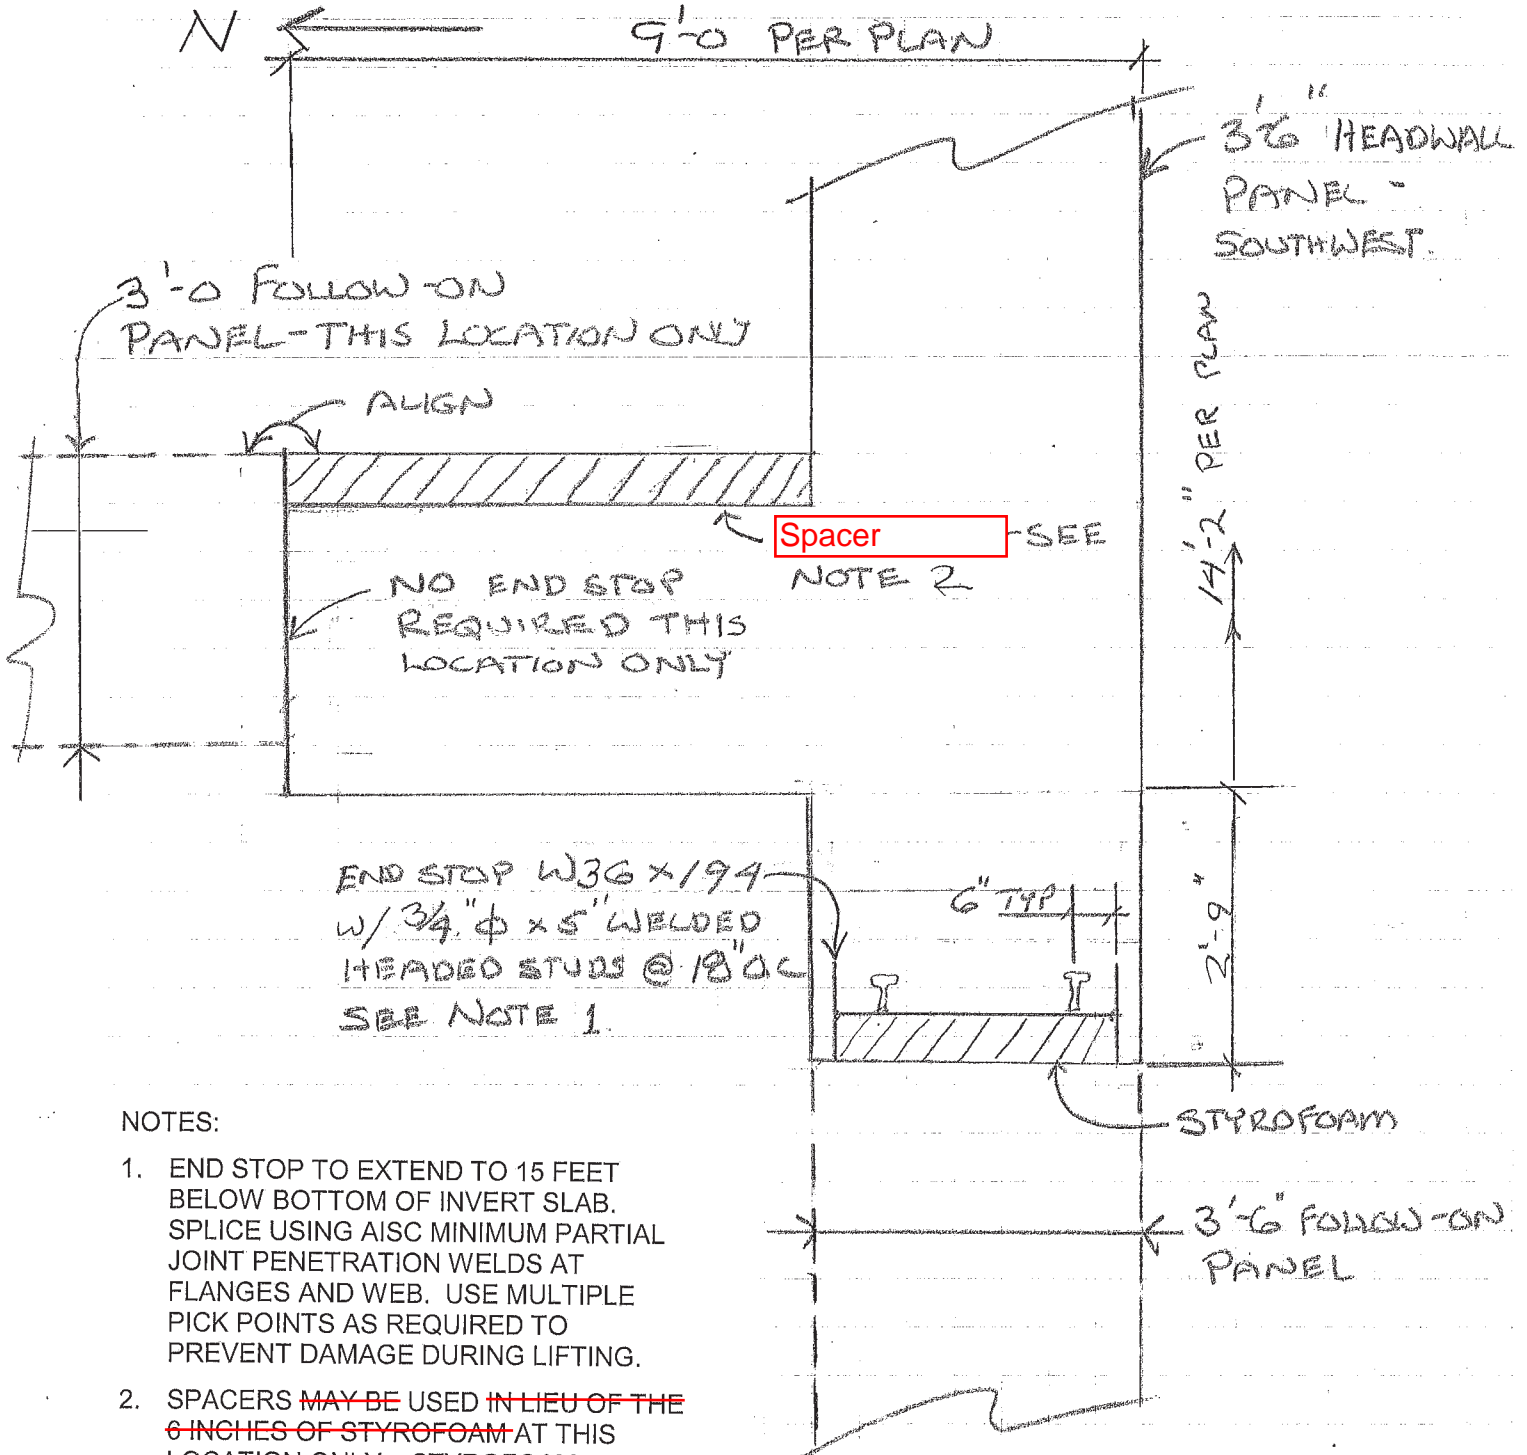 N
9'-0 PER PLAN
3'-6" HEADWALL
PANEL -
SOUTHWEST.
3'-0 FOLLOW-ON
PANEL-THIS LOCATION ONLY
ALIGN
14'-2" PER PLAN
Spacer -SEE
NOTE 2
NO END STOP
REQUIRED THIS
LOCATION ONLY
END STOP W36 x 194
W/ 3/4"φ x 5" WELDED
HEADED STUDS @ 18"O.C
SEE NOTE 1.
6" TYP
2'-9"
STYROFOAM
3'-6" FOLLOW-ON
PANEL
NOTES:
1. END STOP TO EXTEND TO 15 FEET
BELOW BOTTOM OF INVERT SLAB.
SPLICE USING AISC MINIMUM PARTIAL
JOINT PENETRATION WELDS AT
FLANGES AND WEB. USE MULTIPLE
PICK POINTS AS REQUIRED TO
PREVENT DAMAGE DURING LIFTING.
2. SPACERS MAY BE USED IN LIEU OF THE
6 INCHES OF STYROFOAM AT THIS
LOCATION ONLY. STYROFOAM